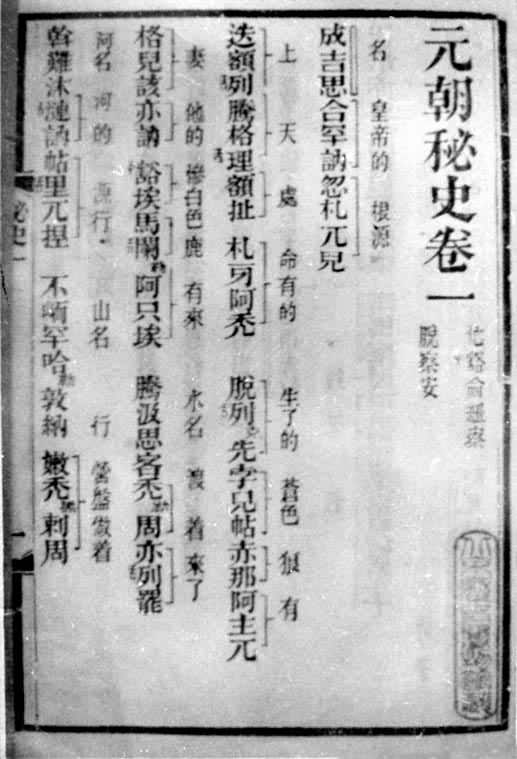 元朝秘史卷一
忙豁侖紐察
脫察安
名 皇帝的 根源
成吉思合罕訥忽札兀兒
上 天 處 命有的 生了的 蒼色 狼 有
迭額列騰格理額扯 札牙阿禿 脫列先孛兒帖赤那阿主兀
妻 他的 慘白色鹿 有來 水名 渡着 來了
格兒該亦訥豁埃馬闌勒阿只埃 騰汲思客禿勒周亦列罷
河名 河的 源行 山名 行 營盤做着
斡難沐漣訥帖里兀揑 不峏罕哈勒敦納嫩禿黑剌周
秘史一